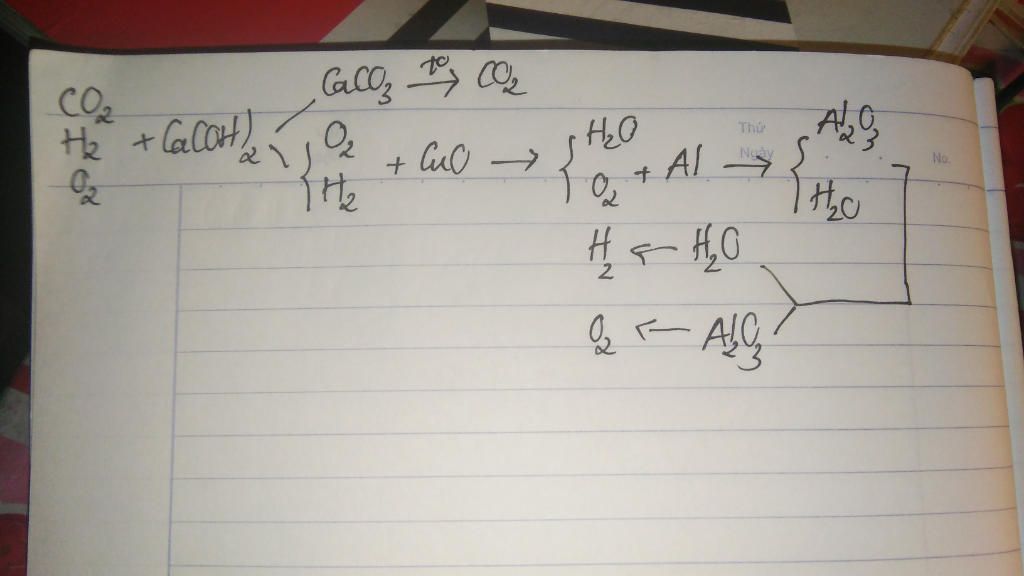 CaCO₃ —t°→ CO₂
CO₂
H₂ + Ca(OH)₂
O₂
{ O₂ H₂ + CuO → { H₂O O₂ + Al → { Al₂O₃ H₂O
Thứ
Ngày
No.
H₂ ← H₂O
O₂ ← Al₂O₃